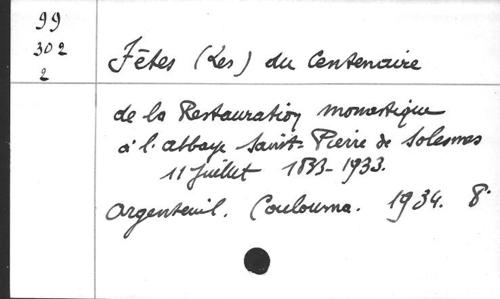 99
302
2
Fêtes (Les) du Centenaire
de la Restauration monastique
à l'abbaye Saint-Pierre de Solesmes
11 Juillet 1833-1933.
Argenteuil. Coulouma. 1934. 8°